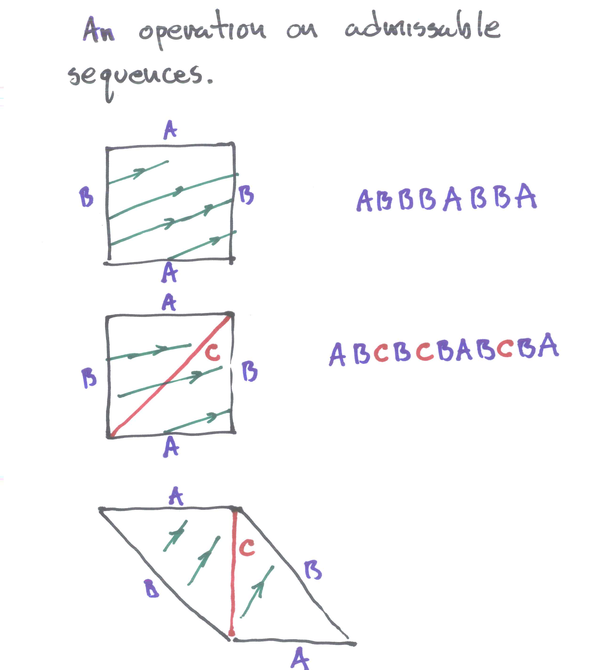 An operation on admissable
sequences.
A
B
B
A
ABBBABBA
A
C
B
B
A
ABCBCBABCBA
A
C
B
B
A